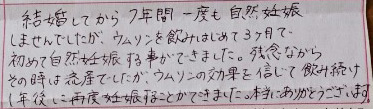 結婚してから7年間一度も自然妊娠
しませんでしたが、ウムリンを飲みはじめて3ヶ月で
初めて自然妊娠する事ができました。残念ながら
その時は流産でしたが、ウムリンの効果を信じて飲み続け
1年後に再度妊娠することができました。本当にありがとうございます